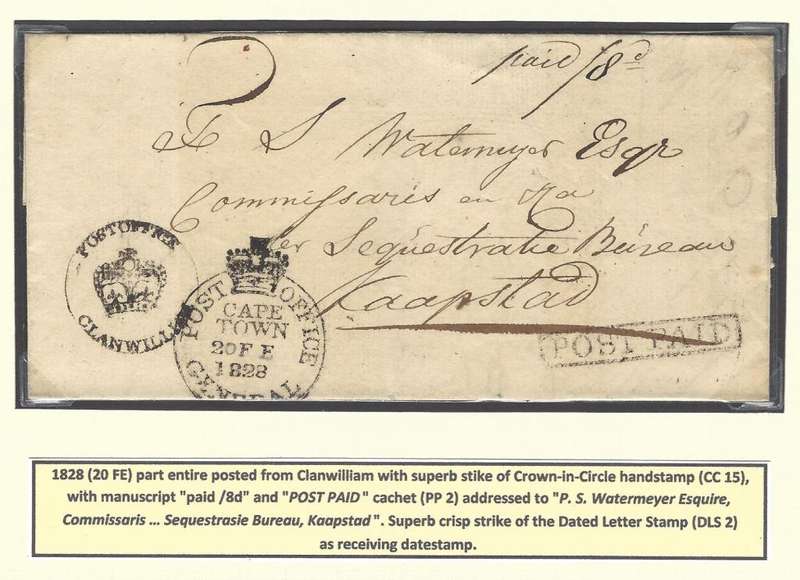 paid /8d
F S Watermeyer Esqr
Commissaris en
der Sequestratie Büreau
Kaapstad
POST OFFICE
CLANWILLI
POST OFFICE
CAPE
TOWN
20 FE
1828
GENERAL
POST PAID
1828 (20 FE) part entire posted from Clanwilliam with superb stike of Crown-in-Circle handstamp (CC 15),
with manuscript "paid /8d" and "POST PAID" cachet (PP 2) addressed to "P. S. Watermeyer Esquire,
Commissaris ... Sequestrasie Bureau, Kaapstad". Superb crisp strike of the Dated Letter Stamp (DLS 2)
as receiving datestamp.